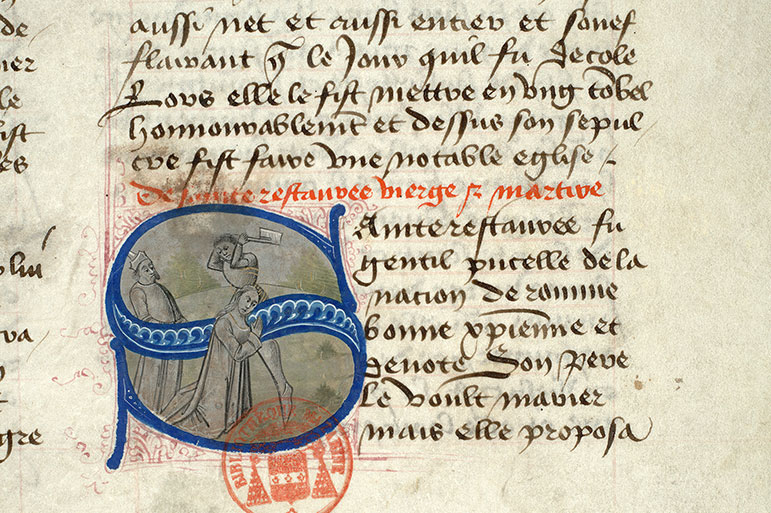 de
ier
le
ist
es
oliū
va
gre
aussi net et aussi entier et souef
flairant q̄ le jour quil fu decole
Lors elle le fist mettre en vng tōbel
honnourablemēt et dessus son sepul
cre fist faire vne notable eglise .
De saincte restauree vierge ꝛ martire
Sainte restauree fu
gentil pucelle de la
nacion de romme
bonne xp̄ienne et
deuote Son pere
le voult marier
mais elle proposa